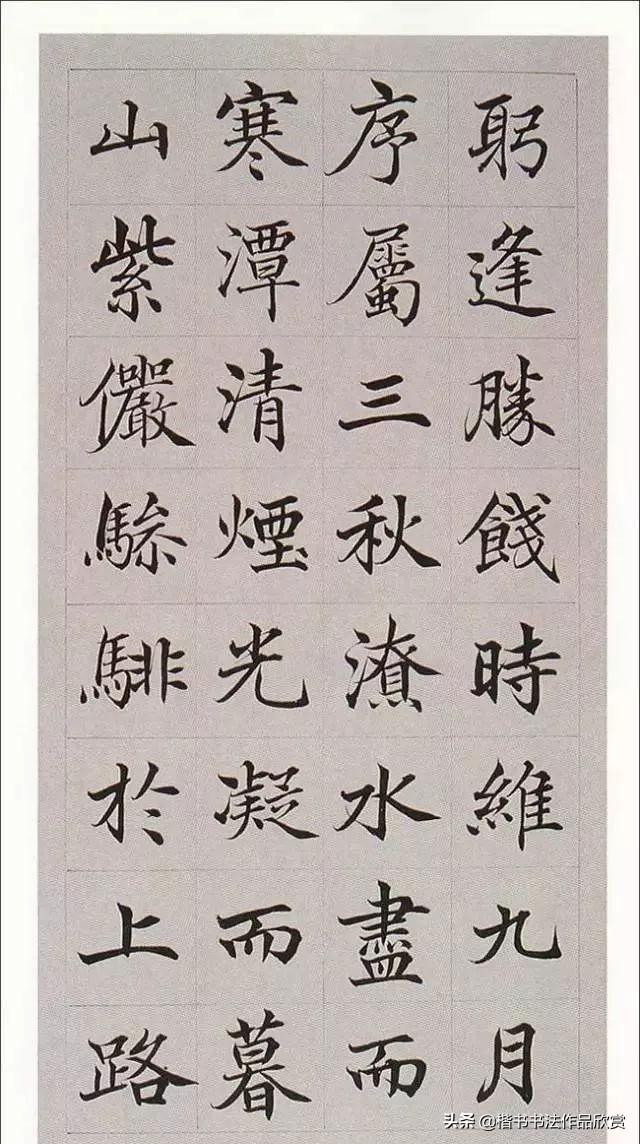 躬逢勝餞時維九月
序屬三秋潦水盡而
寒潭清煙光凝而暮
山紫儼驂騑於上路
头条 @楷书书法作品欣赏